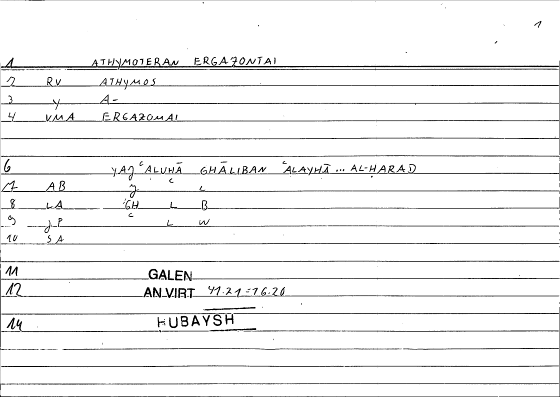 1
1 ATHYMOTERAN ERGAZONTAI
2 RV ATHYMOS
3 y A-
4 VMA ERGAZOMAI
6 YAJ ͨALUHĀ GHĀLIBAN ͨALAYHĀ ... AL-HARAD
7 AB J ͨ L
8 LA GH L B
9 JP ͨ L W
10 SA
11 GALEN
12 AN.VIRT 41.21 = 16.20
14 HUBAYSH